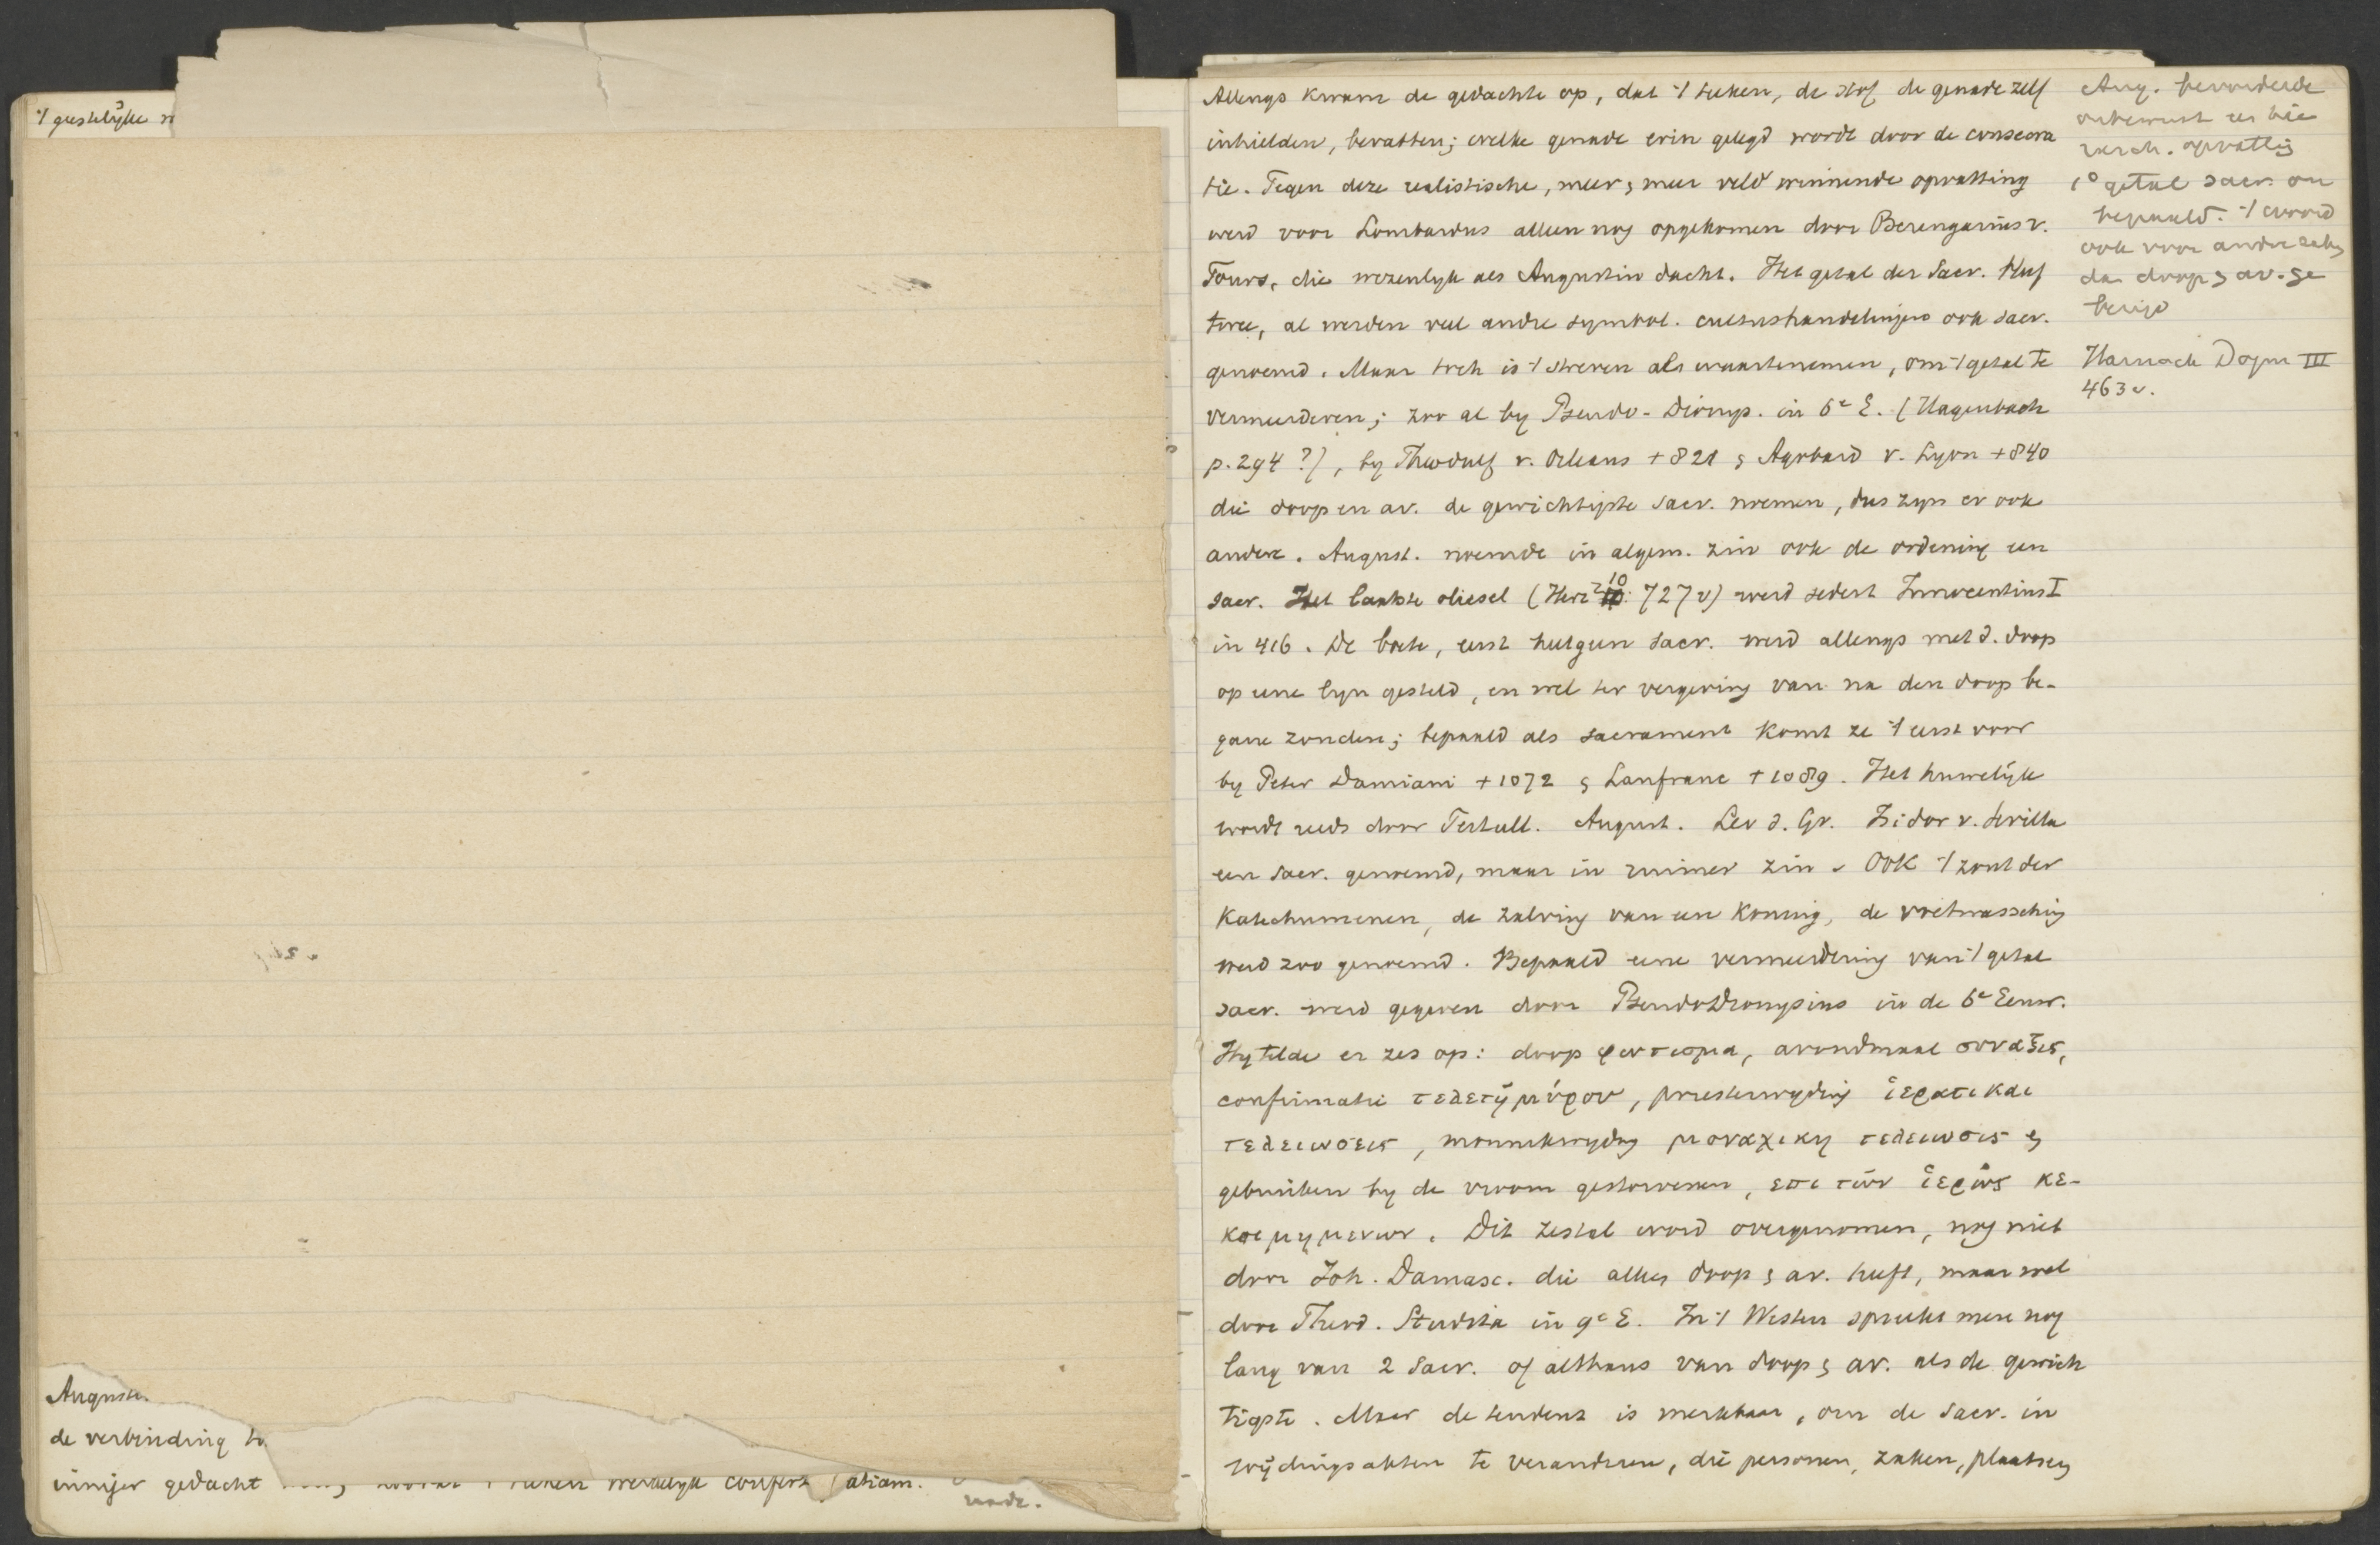 't geestelijke
Augustin
de verbinding
inniger gedacht 't teken werkelijk confert atiam.
nade.
Allengs kwam de gedachte op, dat 't teeken, de stof de genade zelf
inhielden, bevatten; welke genade erin gelegd wordt door de consecra
tie. Tegen deze realistische, meer & meer veld winnende opvatting
werd voor Lombardus alleen nog opgekomen door Berengarius v.
Tours, die wezenlyk als Augustin dacht. Het getal der Sacr. bleef
twee, al werden veel andre symbol. cultushandelingen ook sacr.
genoemd. Maar toch is 't streven als waartenemen, om 't getal te
vermeerderen; zoo al by Pseudo-Dionys. in 6e E. (Hagenbach
p. 294?), by Theodulf v. Orleans +821 & Agobard v. Lyon +840
die doop en av. de gewichtigste sacr. noemen, dus zyn er ook
andere. August. noemde in algem. zin ook de ordening een
sacr. Het laatste oliesel (Herz² 10: 727v) werd sedert Innocentius I
in 416. De boete, eerst heelgeen sacr. werd allengs met d. doop
op eene lyn gesteld, en wel ter vergeving van na den doop be-
gane zonden; bepaald als sacrament komt ze 't eerst voor
by Peter Damiani +1072 & Lanfranc +1089. Het huwelijk
wordt reeds door Tertull. August. Leo d. Gr. Isidor v. Sevilla
een sacr. genoemd, maar in ruimer zin. Ook 't zout der
Katechumenen, de zalving van een Koning, de voetwassching
werd zoo genoemd. Bepaald eene vermeerdering van 't getal
sacr. werd gegeven door PseudoDionysius in de 6e Eeuw.
Hy telde er zes op: doop φωτισμα, avondmaal συναξις,
confirmatie τελετη μύρου, priesterwyding ἱερατικαι
τελειωσεις, monnikwyding μοναχικη τελειωσις &
gebruiken by de vroom gestorvenen, επι των ἱερῶς κε-
κοιμημενων. Dit zestal word overgenomen, nog niet
door Joh. Damasc. die alleen doop & av. heeft, maar wel
door Theod. Studita in 9e E. In 't Westen spreekt men nog
lang van 2 Sacr. of althans van doop & av. als de gewich
tigste. Maar de tendenz is merkbaar, om de Sacr. in
wijdingsakten te veranderen, die personen, zaken, plaatsen
Aug. bevorderde
onbewust een hie
rarch. opvatting
1° getal sacr. on
bepaald. 't woord
ook voor andre zaken
dan doop & av. ge
bezigd
Harnack Dogm III
463v.